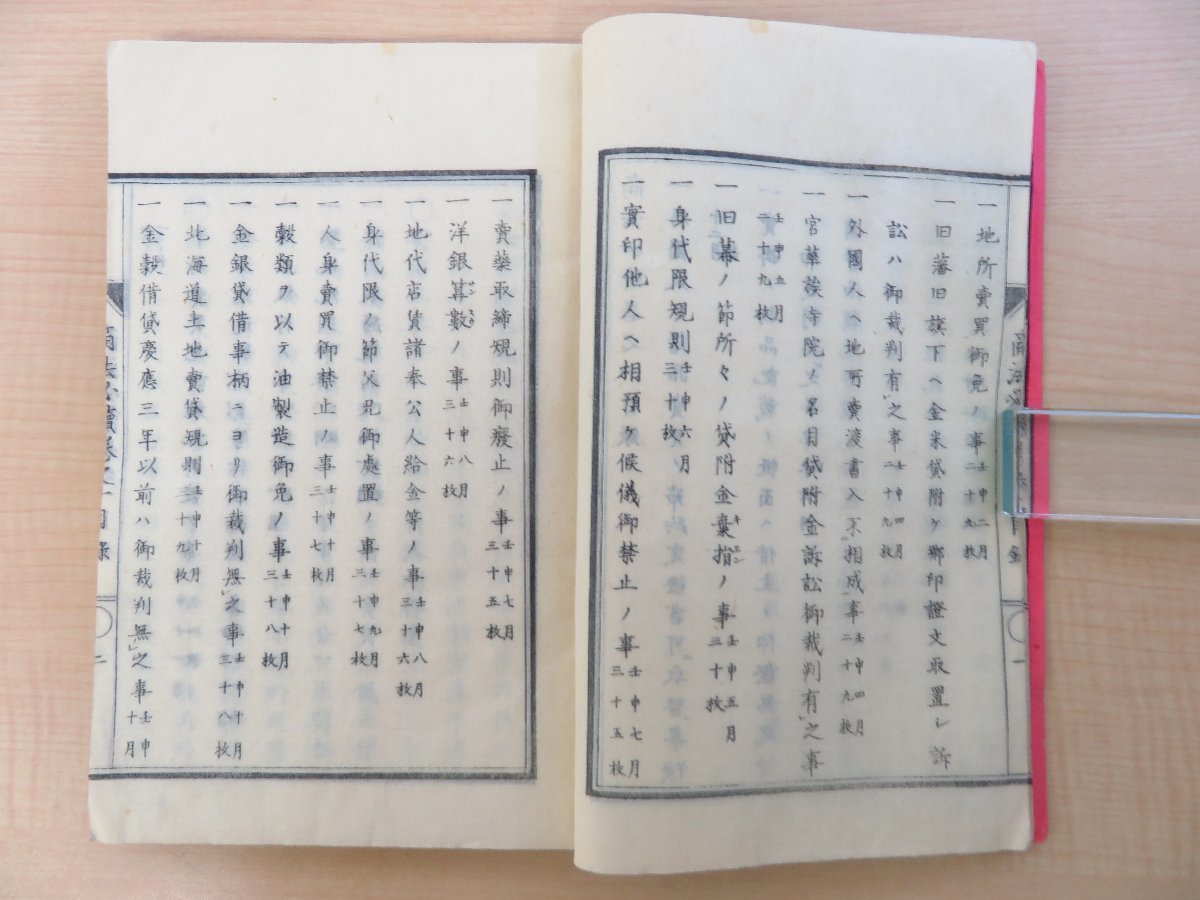 一地所賣買御免ノ事壬申二月二十九枚
一旧藩旧旗下ヘ金米貸附ケ郷印證文取置シ訴
訟ハ御裁判有之事壬申四月二十九枚
一外國人ヘ地所賣渡書入不相成事壬申四月二十九枚
一宮華族寺院ノ名目貸附金訴訟御裁判有之事
壬申五月二十九枚
一旧幕ノ節所々ノ貸附金棄指ノ事壬申五月三十枚
一身代限規則壬申六月三十枚
一實印他人ヘ相預ケ候儀御禁止ノ事壬申七月三十五枚
一賣藥取締規則御廢止ノ事壬申七月三十五枚
一洋銀算數ノ事壬申八月三十六枚
一地代店賃諸奉公人給金等ノ事壬申八月三十六枚
一身代限ノ節父兄御處置ノ事壬申九月三十七枚
一人身賣買御禁止ノ事壬申十月三十七枚
一穀類ヲ以テ油製造御免ノ事壬申十月三十八枚
一金銀貸借事柄ニヨリ御裁判無之事壬申十月三十八枚
一北海道土地賣貸規則壬申十月三十九枚
一金穀借貸慶應三年以前ハ御裁判無之事壬申十月
目錄
二